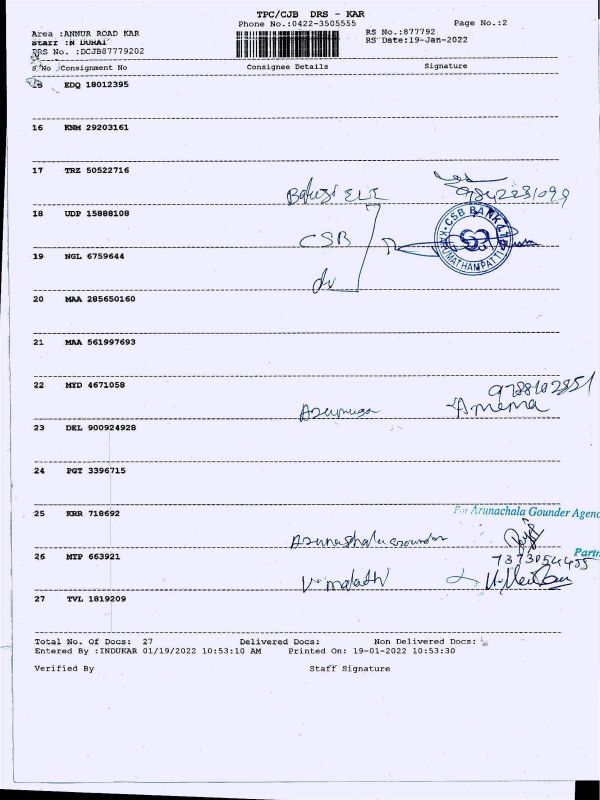 TPC/CJB DRS - KAR
Phone No.:0422-3505555 Page No.:2
Area :ANNUR ROAD KAR RS No.:877792
Staff :N DURAI RS Date:19-Jan-2022
DRS No. :DCJB87779202
S No Consignment No Consignee Details Signature
15 EDQ 18012395
16 KNM 29203161
17 TRZ 50522716
ELE 9842231099
18 UDP 15888108
CSB CSB BANK LTD KARUMATHAMPATTI
19 NGL 6759644
20 MAA 285650160
21 MAA 561997693
22 MYD 4671058
9788102851
23 DEL 900924928
24 PGT 3396715
25 KRR 718692
For Arunachala Gounder Agenc
26 MTP 663921
Partn
7373054455
V. malathi
27 TVL 1819209
Total No. Of Docs: 27 Delivered Docs: Non Delivered Docs:
Entered By :INDUKAR 01/19/2022 10:53:10 AM Printed On: 19-01-2022 10:53:30
Verified By Staff Signature